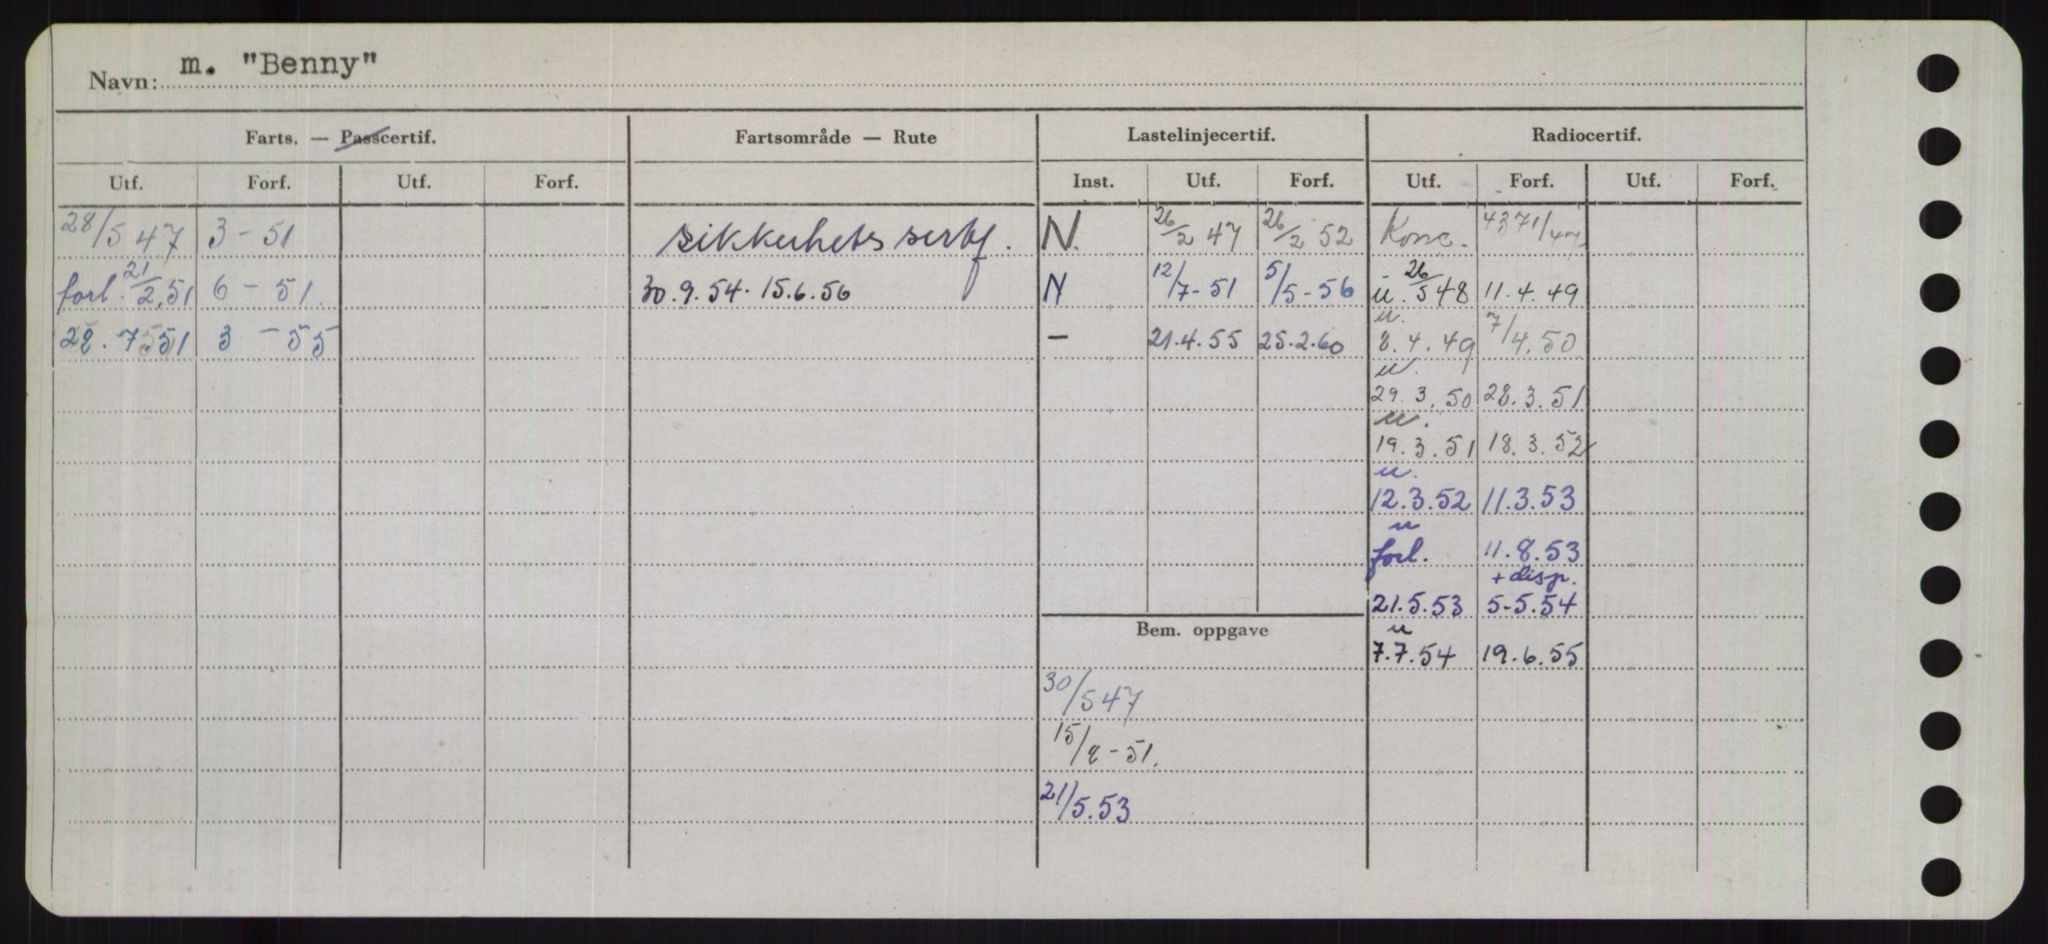 Navn: m. "Benny"
Farts. — Passcertif. Fartsområde — Rute Lastelinjecertif. Radiocertif.
Utf. Forf. Utf. Forf. Inst. Utf. Forf. Utf. Forf. Utf. Forf.
28/5 47 3 - 51 sikkerhetssertf. N. 26/2 47 26/2 52 Konc. 4371/47
forl. 21/2.51 6 - 51. 30.9.54. 15.6.56 N 12/7-51 5/5-56 u. 26/5 48 11.4.49
u.
28. 7 51 3 - 55 — 21.4.55 25.2.60 8.4.49 7/4.50
u.
29.3.50 28.3.51
u.
19.3.51 18.3.52
u.
12.3.52 11.3.53
u
forl. 11.8.53
+ disp.
21.5.53 5-5.54
Bem. oppgave u
7.7.54 19.6.55
30/5 47
15/8-51.
21/5.53